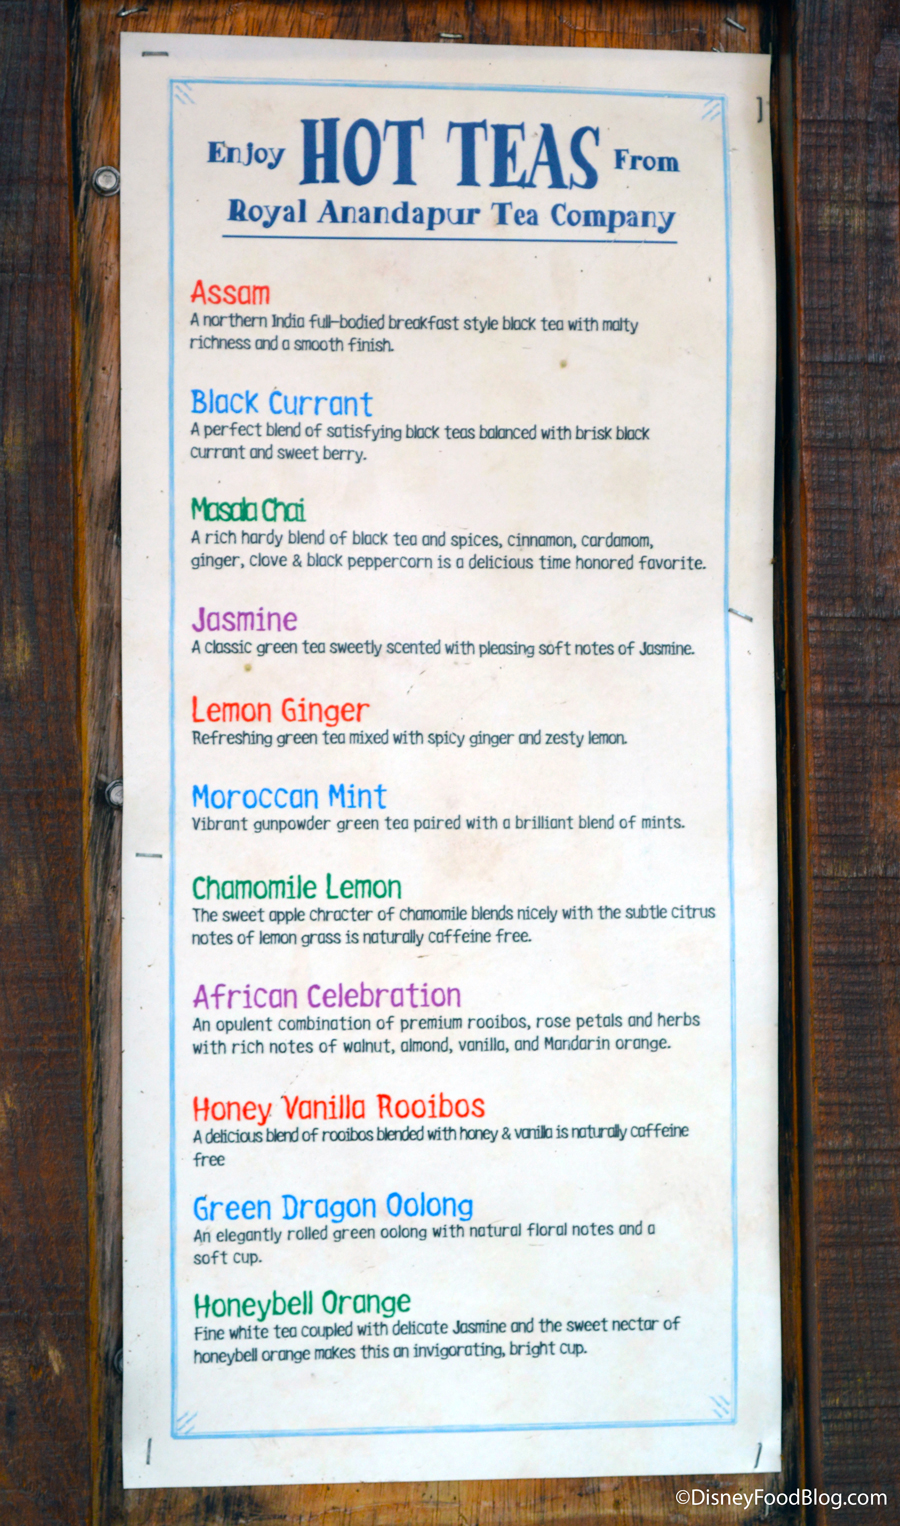 Enjoy HOT TEAS From
Royal Anandapur Tea Company
Assam
A northern India full-bodied breakfast style black tea with malty
richness and a smooth finish.
Black Currant
A perfect blend of satisfying black teas balanced with brisk black
currant and sweet berry.
Masala Chai
A rich hardy blend of black tea and spices, cinnamon, cardamom,
ginger, clove & black peppercorn is a delicious time honored favorite.
Jasmine
A classic green tea sweetly scented with pleasing soft notes of Jasmine.
Lemon Ginger
Refreshing green tea mixed with spicy ginger and zesty lemon.
Moroccan Mint
Vibrant gunpowder green tea paired with a brilliant blend of mints.
Chamomile Lemon
The sweet apple chracter of chamomile blends nicely with the subtle citrus
notes of lemon grass is naturally caffeine free.
African Celebration
An opulent combination of premium rooibos, rose petals and herbs
with rich notes of walnut, almond, vanilla, and Mandarin orange.
Honey Vanilla Rooibos
A delicious blend of rooibos blended with honey & vanilla is naturally caffeine
free
Green Dragon Oolong
An elegantly rolled green oolong with natural floral notes and a
soft cup.
Honeybell Orange
Fine white tea coupled with delicate Jasmine and the sweet nectar of
honeybell orange makes this an invigorating, bright cup.
©DisneyFoodBlog.com